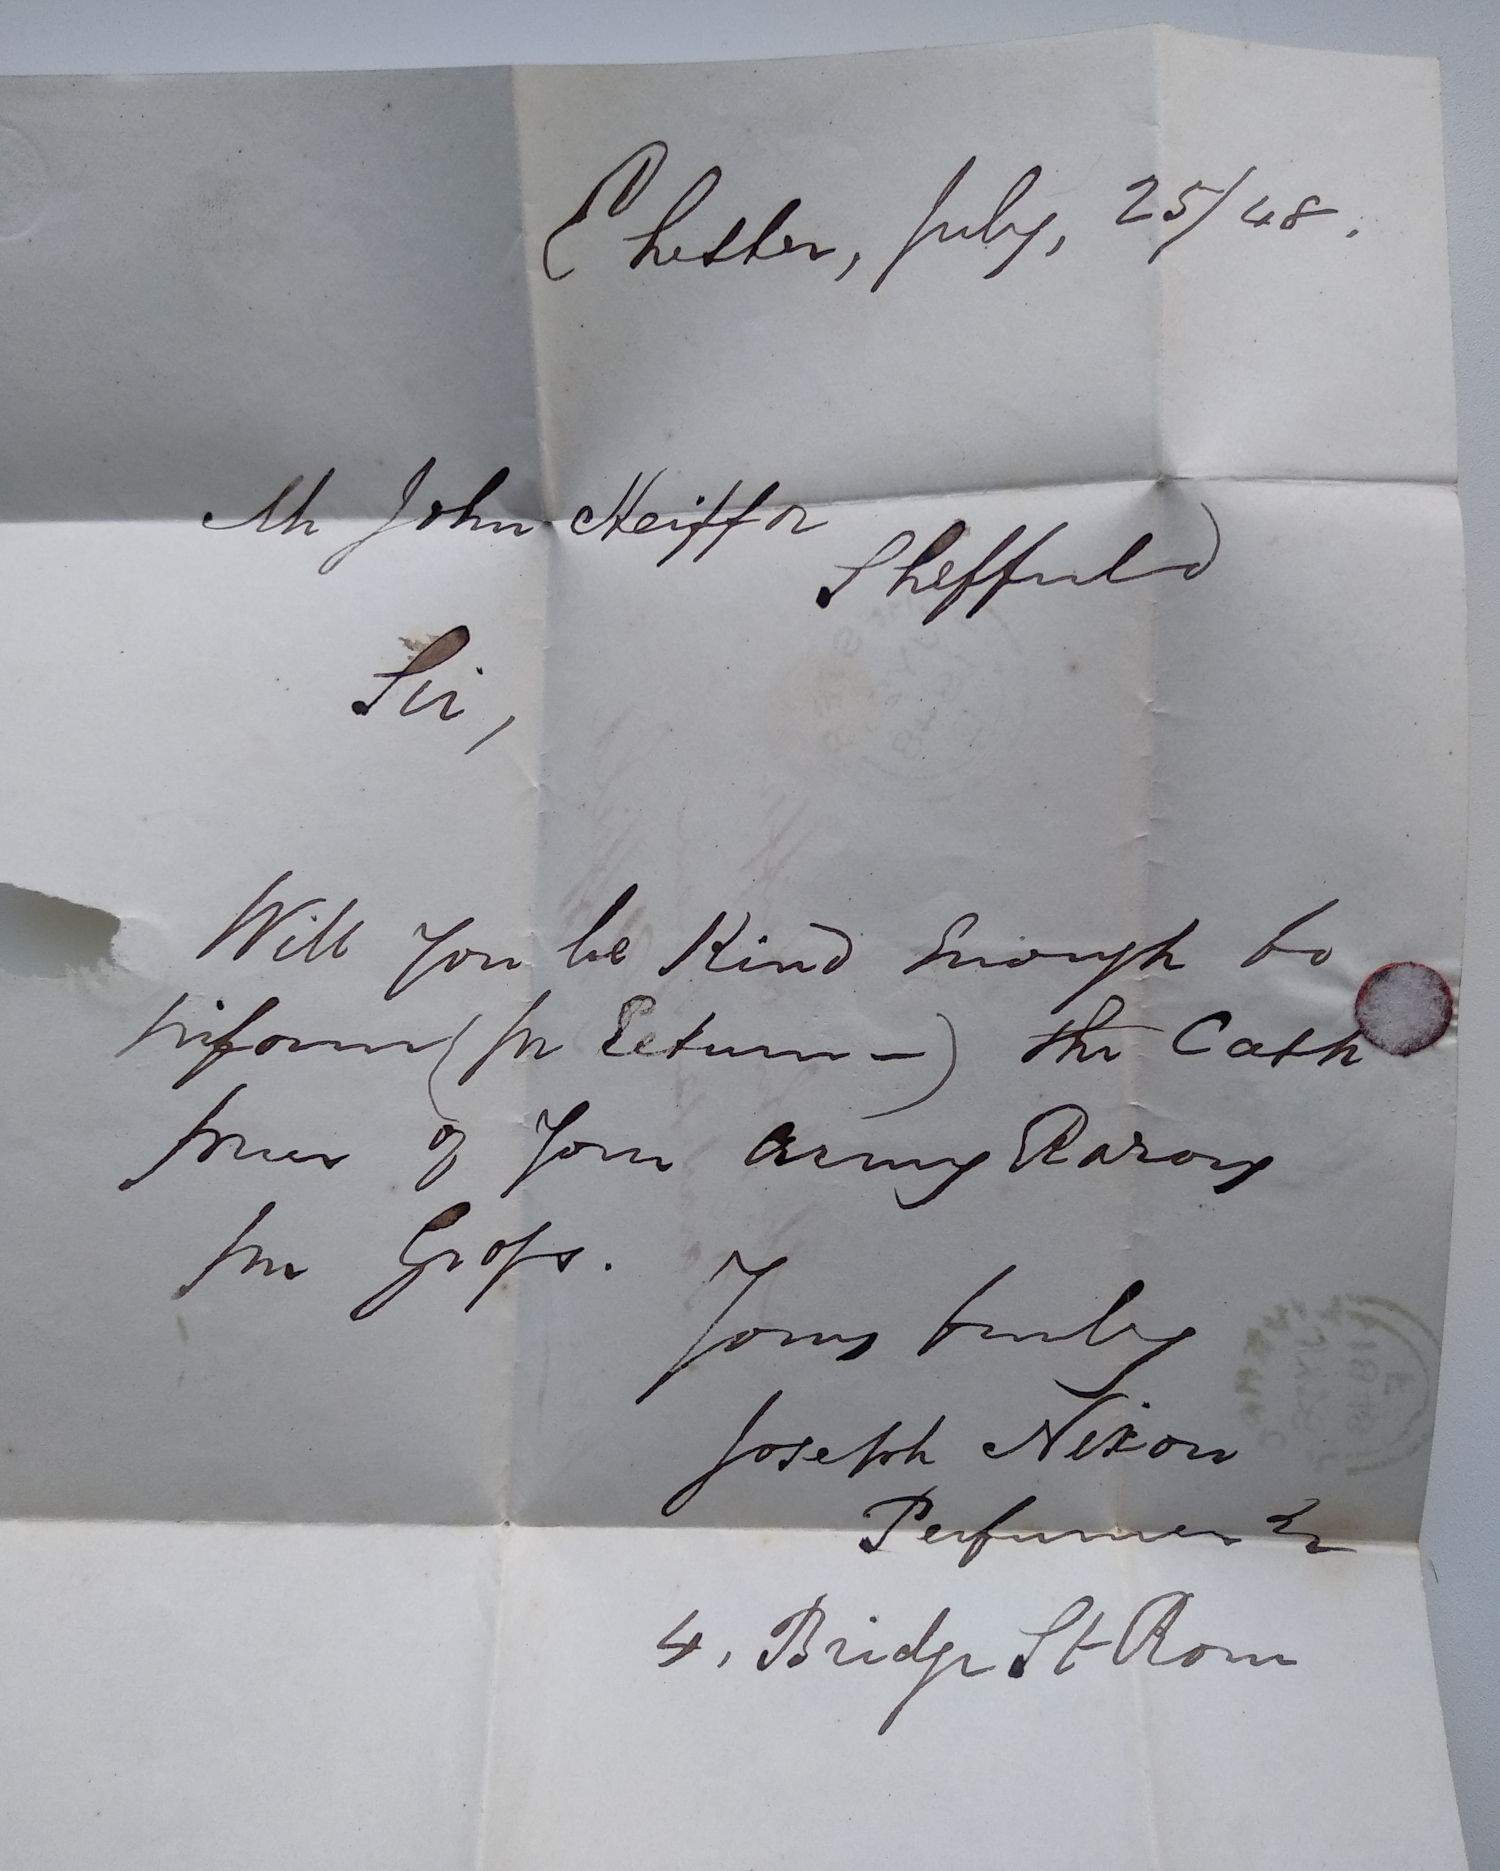 Chester, July, 25/48.
Mr John Heiffor
Sheffield
Sir,
Will You be Kind Enough to
inform (per Return—) the Cash
prices of Your Army Razors
per Gross.
Yours truly
Joseph Nixon
Perfumer &c
4, Bridge St Row